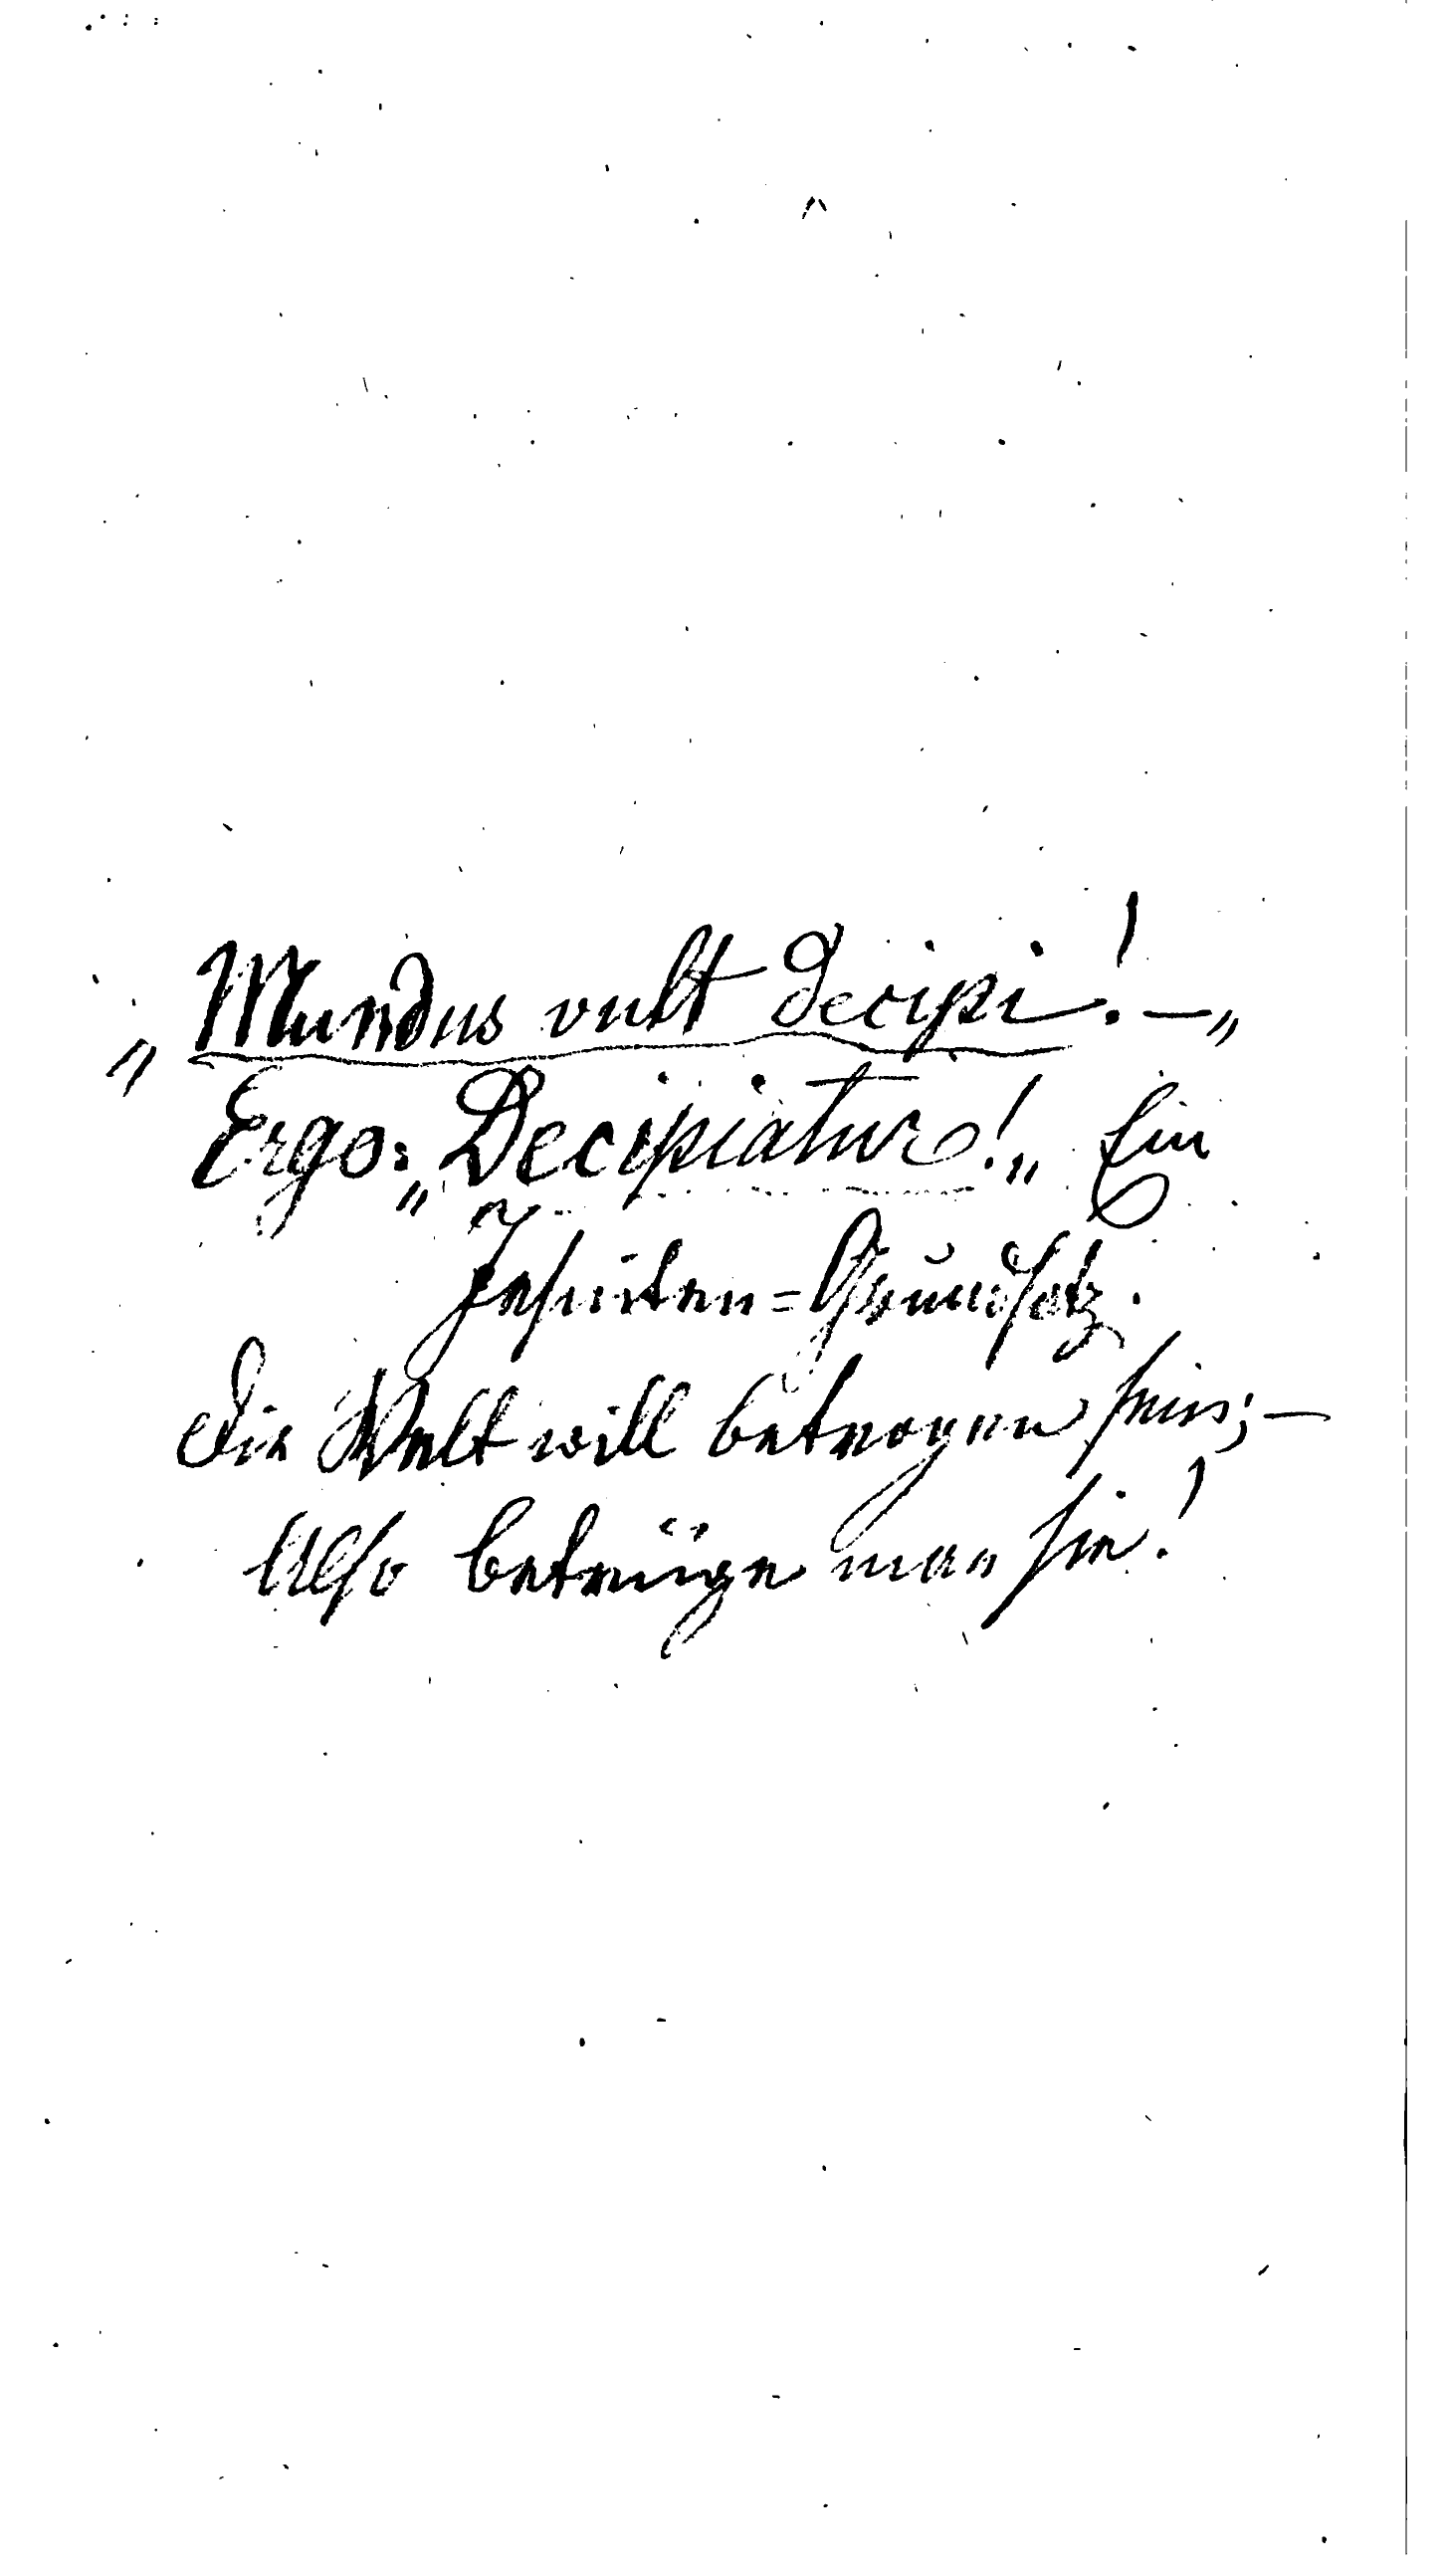 „Mundus vult decipi! —„
Ergo: „Decipiatur!„ Ein
Jesuiten=Grundsatz.
Die Welt will betrogen sein; —
Also betrüge man sie!